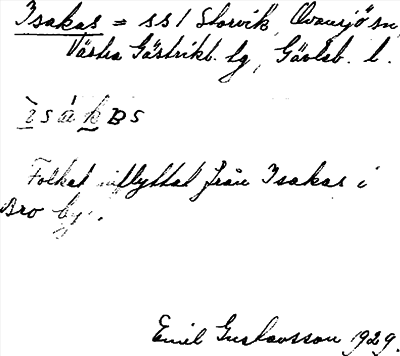 Isakas = ss 1 Storvik, Ovansjö sn,
Västra Gästrikl. tg, Gävleb. l.
ìsákɒs
Folket inflyttat från Isakas i
Bro by.
Emil Gustavsson 1929.